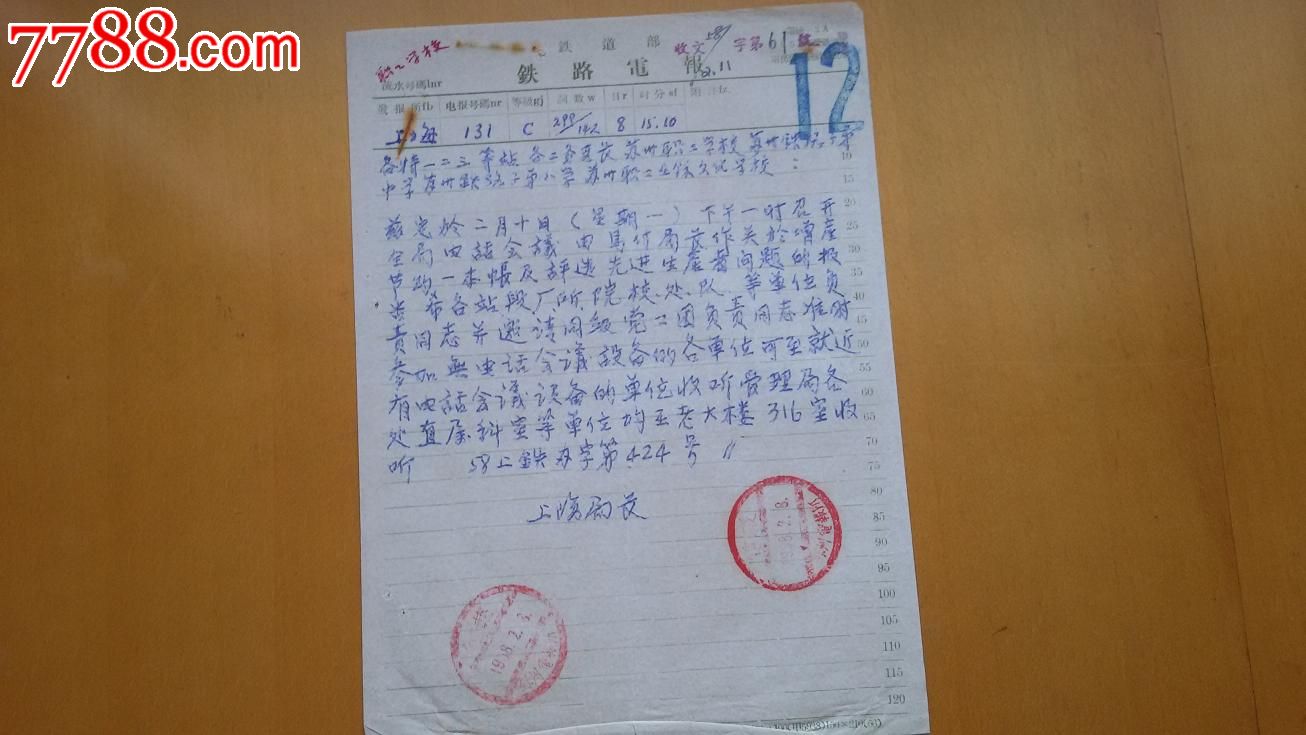 7788.com
职工学校
鉄道部
收文 58/ 字第61号
鉄路電報
2.11
12
流水号碼lnr
發报所fb 电报号碼nr 等級gj 詞数w 日r 时分sf 附註fz
上海 131 C 299/142 8 15.10
各特一二三等站 各工务段长 苏州职工学校 苏州铁路子弟
中学 苏州铁路子弟小学 苏州职工业余文化学校:
兹定於二月十日(星期一)下午一时召开
全局电話会議 由馬付局长作关於增產
节约一本帳及評选先进生產者问题的报
告 希各站段厂所院校处队等单位负
责同志并邀请同級党工团负责同志准时
参加無电話会議設备的各单位可至就近
有电話会議设备的单位收听管理局各
处直属科室等单位均至老大楼316室收
听 58上鉄办字第424号〃
上海局长
1958.2.8.
1958.2.8.
10
15
20
25
30
35
40
45
50
55
60
65
70
75
80
85
90
95
100
105
110
115
120